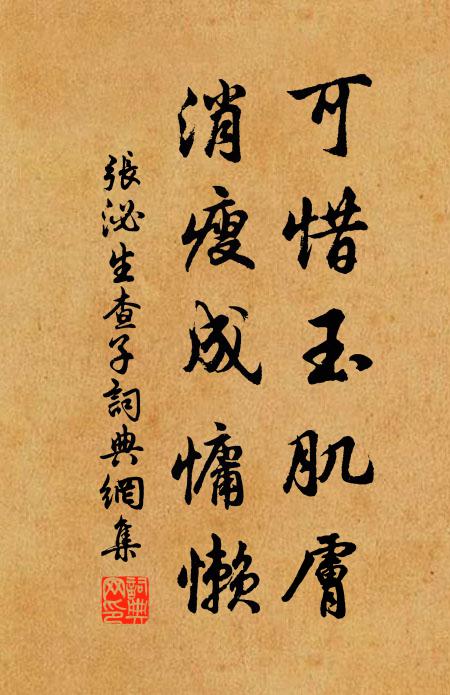 可惜玉肌膚
消瘦成慵懶
張泌生查子詞典網集
詞典網印